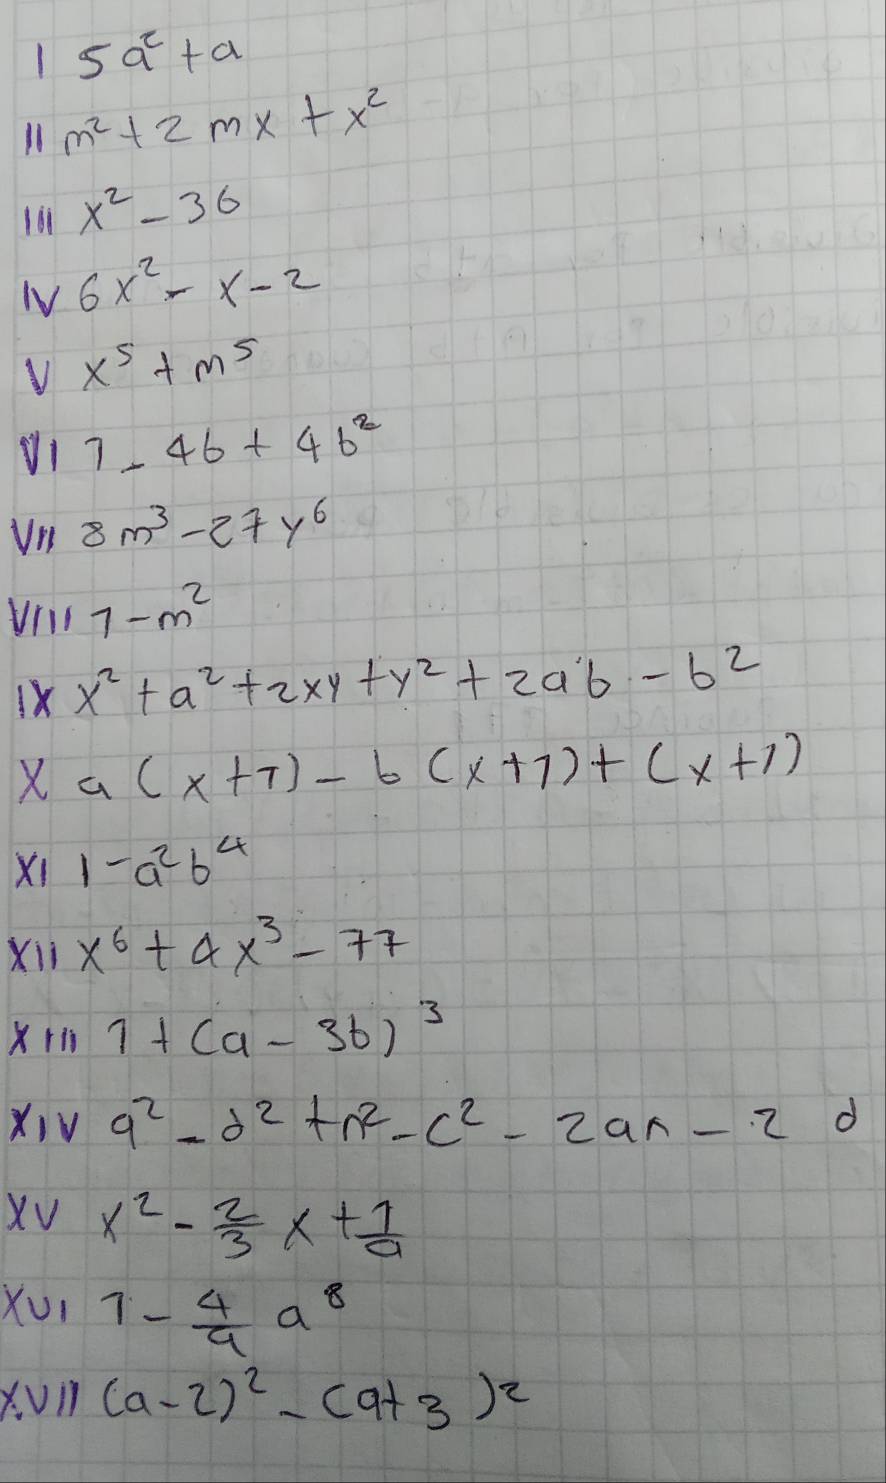 I 5a² + a
II m² + 2mx + x²
III x² - 36
IV 6x² - x - 2
V x⁵ + m⁵
VI 1 - 4b + 4b²
VII 8m³ - 27y⁶
VIII 1 - m²
IX x² + a² + 2xy + y² + 2ab - b²
X a(x+1) - b(x+1) + (x+1)
XI 1 - a²b⁴
XII x⁶ + 4x³ - 77
XIII 1 + (a - 3b)³
XIV a² - d² + n² - c² - 2an - 2 d
XV x² - 2/3 x + 1/9
XVI 1 - 4/9 a⁸
XVII (a-2)² - (a+3)²